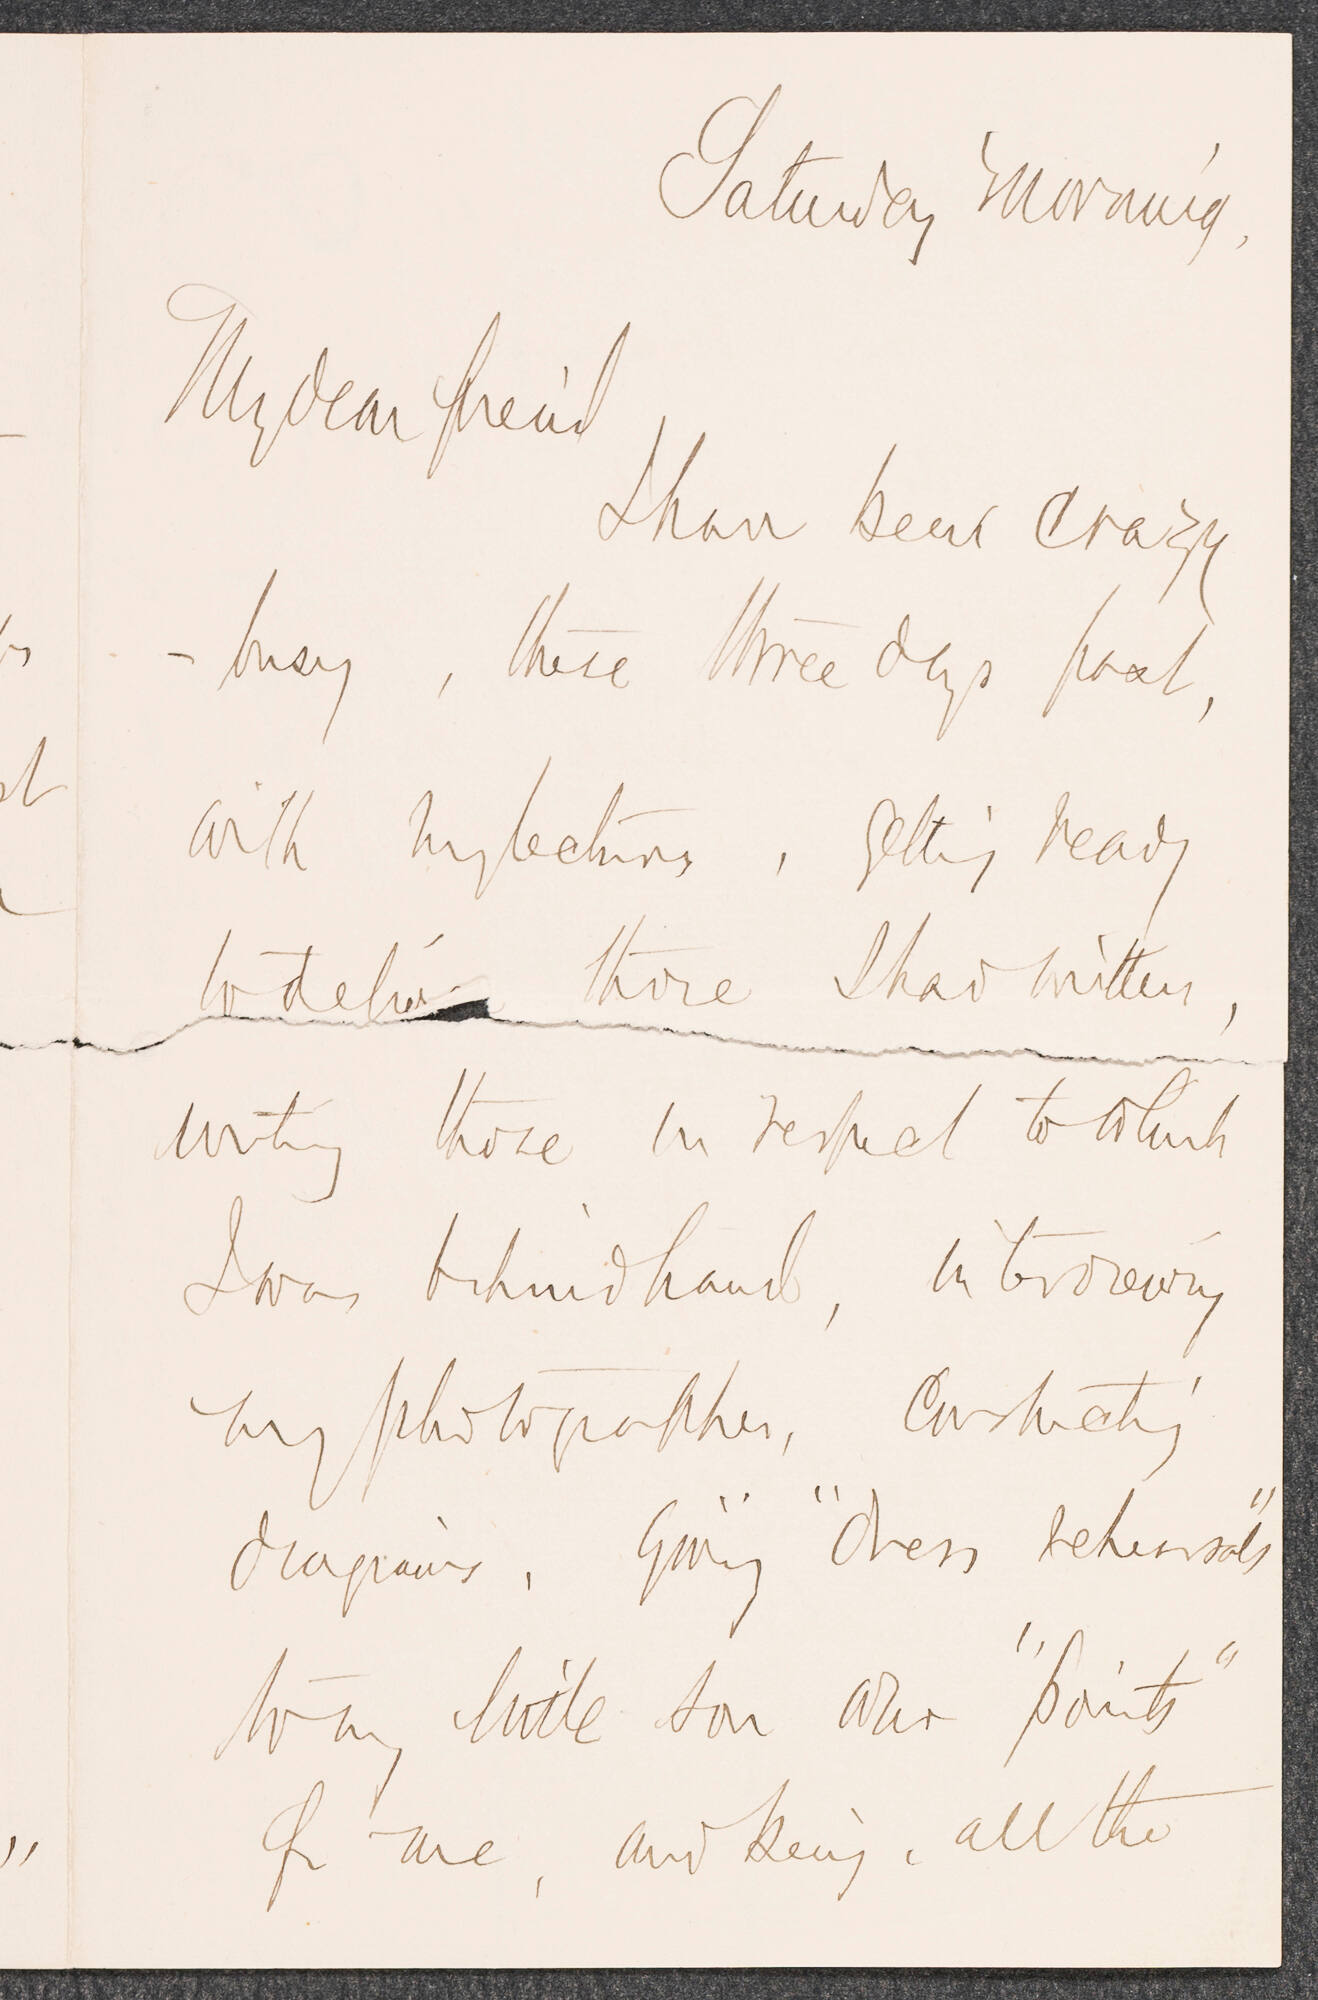 Saturday Morning,
My dear freind
I have been crazy
- busy, these three days past,
with my lectures, getting ready
to deliver those I had written,
writing those in respect to which
I was behindhand, interviewing
my photographer, constructing
diagrams, giving "dress rehearsals"
to my little son who "points"
for me, and being, all the